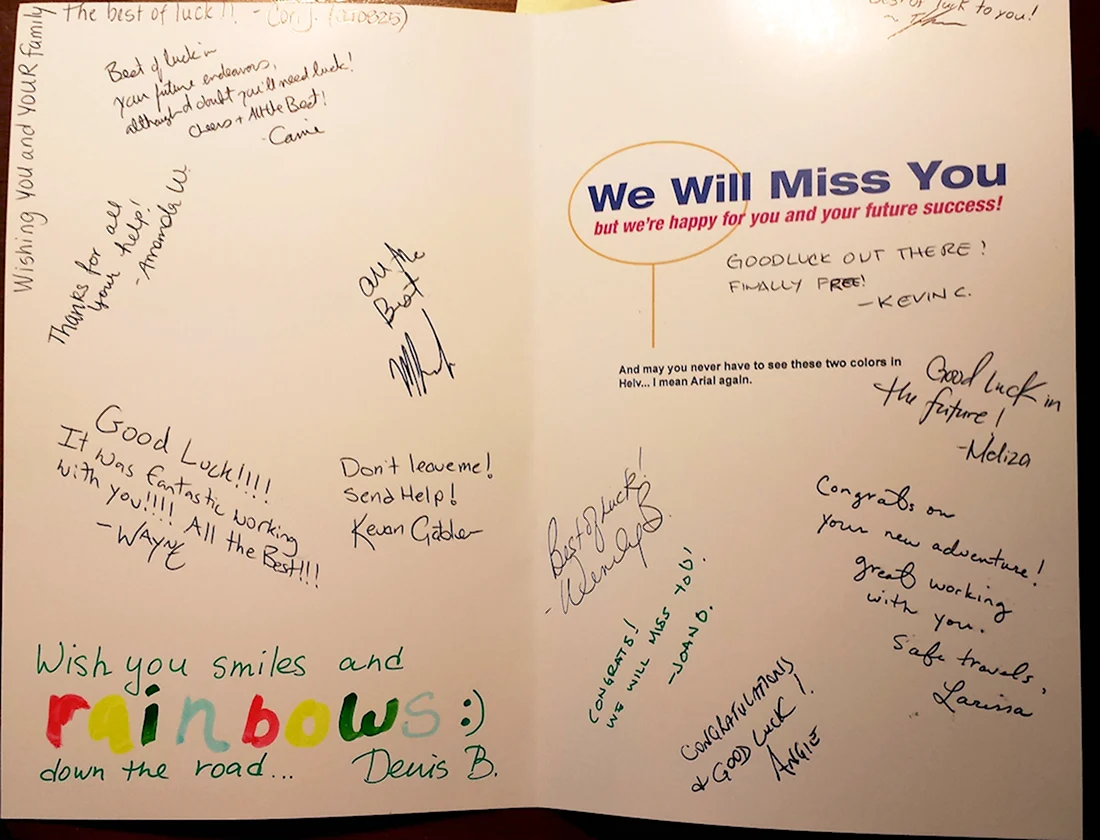 Wishing you and youR family
the best of luck!! - Cori J. (040825)
Best of luck in
your future endeavors,
although I doubt you'll need luck!
cheers + All the Best!
-Carrie
Thanks for all
your help!
-Amanda W.
All the
Best
Good Luck!!!!
It was fantastic working
with you!!!! All the Best!!!
-WAYNE
Don't leave me!
Send Help!
Kevan Gabler
Wish you smiles and
rainbows :)
down the road... Denis B.
luck to you!
We Will Miss You
but we're happy for you and your future success!
GOODLUCK OUT THERE!
FINALLY FREE!
-KEVIN C.
And may you never have to see these two colors in
Helv... I mean Arial again.
Good Luck in
the future!
-Meliza
Best of Luck!
-Wendy B.
Congrats on
your new adventure!
great working
with you.
Safe travels,
Larissa
CONGRATS!
WE WILL MISS YOU!
-JOAN D.
CONGRATULATIONS
& GOOD LUCK!
ANGIE